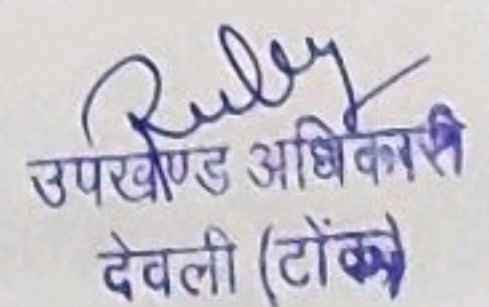 Ruby
उपखण्ड अधिकारी
देवली (टोंक)